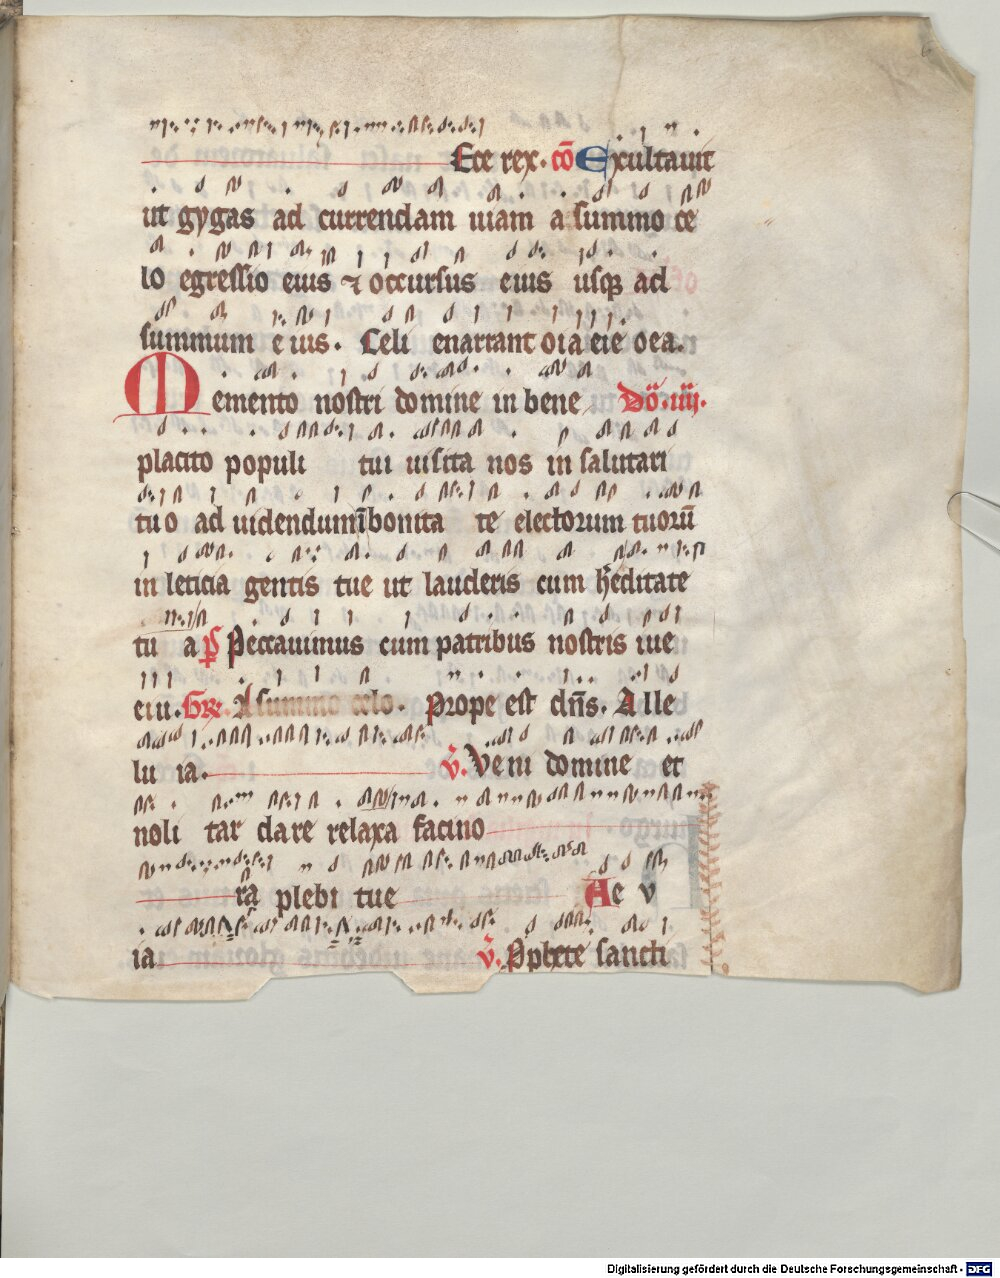 6
Ecce rex. cō Exultauit
ut gygas ad currendam uiam a summo ce
lo egressio eius ⁊ occursus eius usqꝫ ad
summum eius. Celi enarrant oia eie oea.
Memento nostri domine in bene Dō. iiij.
placito populi tui uisita nos in salutari
tuo ad uidendum ī bonita te electorum tuorū
in leticia gentis tue ut lauderis cum hēditate
tu a pͨ Peccauimus cum patribus nostris iue
eiu. Gr̄. A summo celo. Prope est dn̄s. Alle
lu ia. v̄. Veni domine et
noli tar dare relaxa facino
ra plebi tue Ae v
ia v̄. Pphete sancti
Digitalisierung gefördert durch die Deutsche Forschungsgemeinschaft - DFG